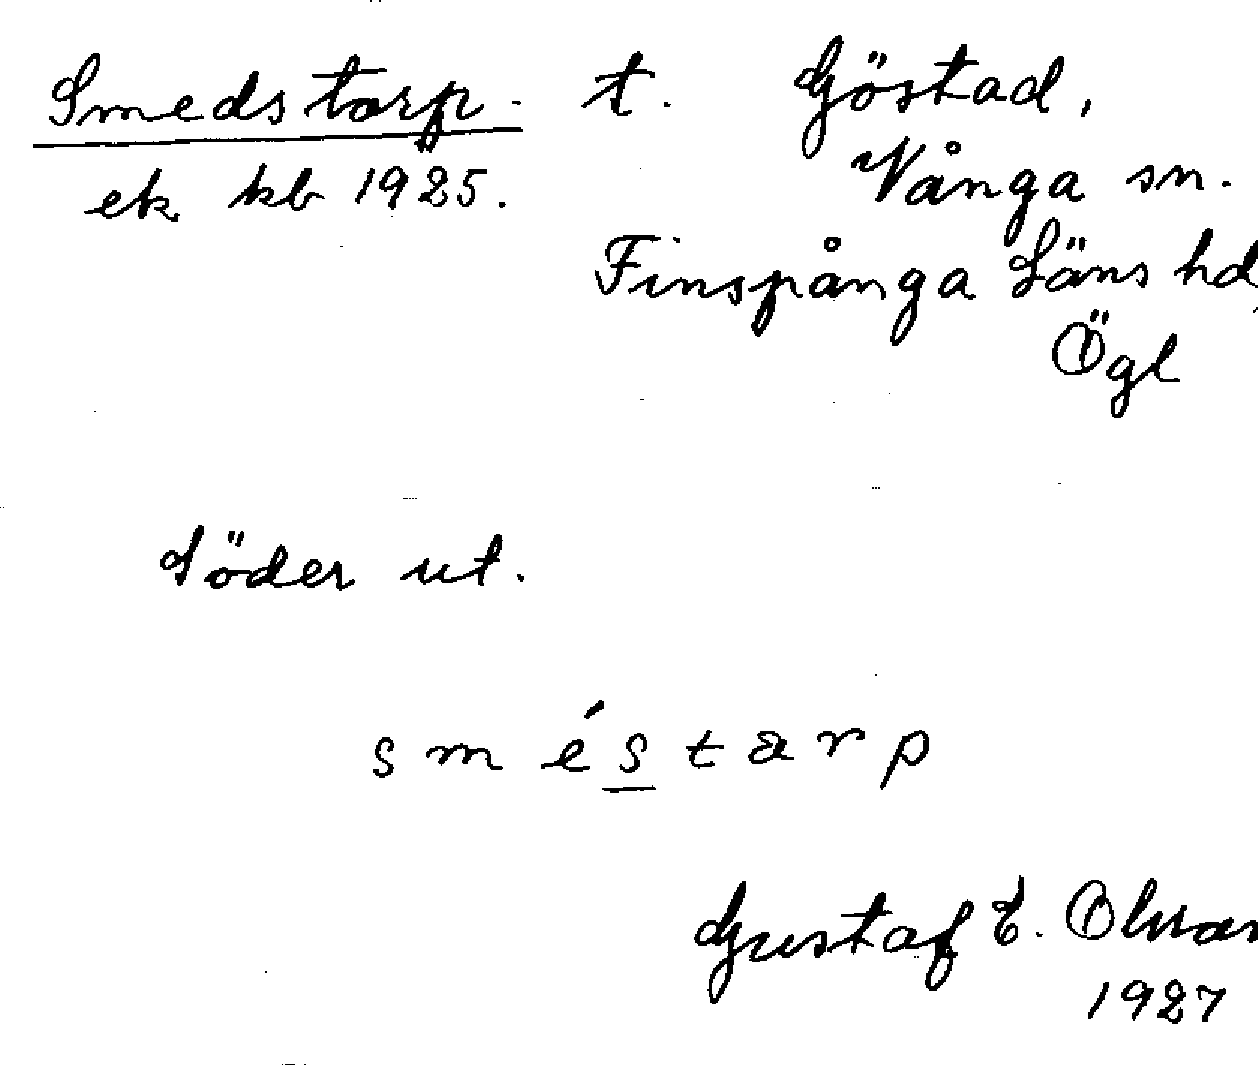 Smedstorp. t. Göstad,
Vånga sn.
ek kb 1925.
Finspånga Läns hd
Ögl
Söder ut.
s m é s t a r p
Gustaf E. Olsson
1927